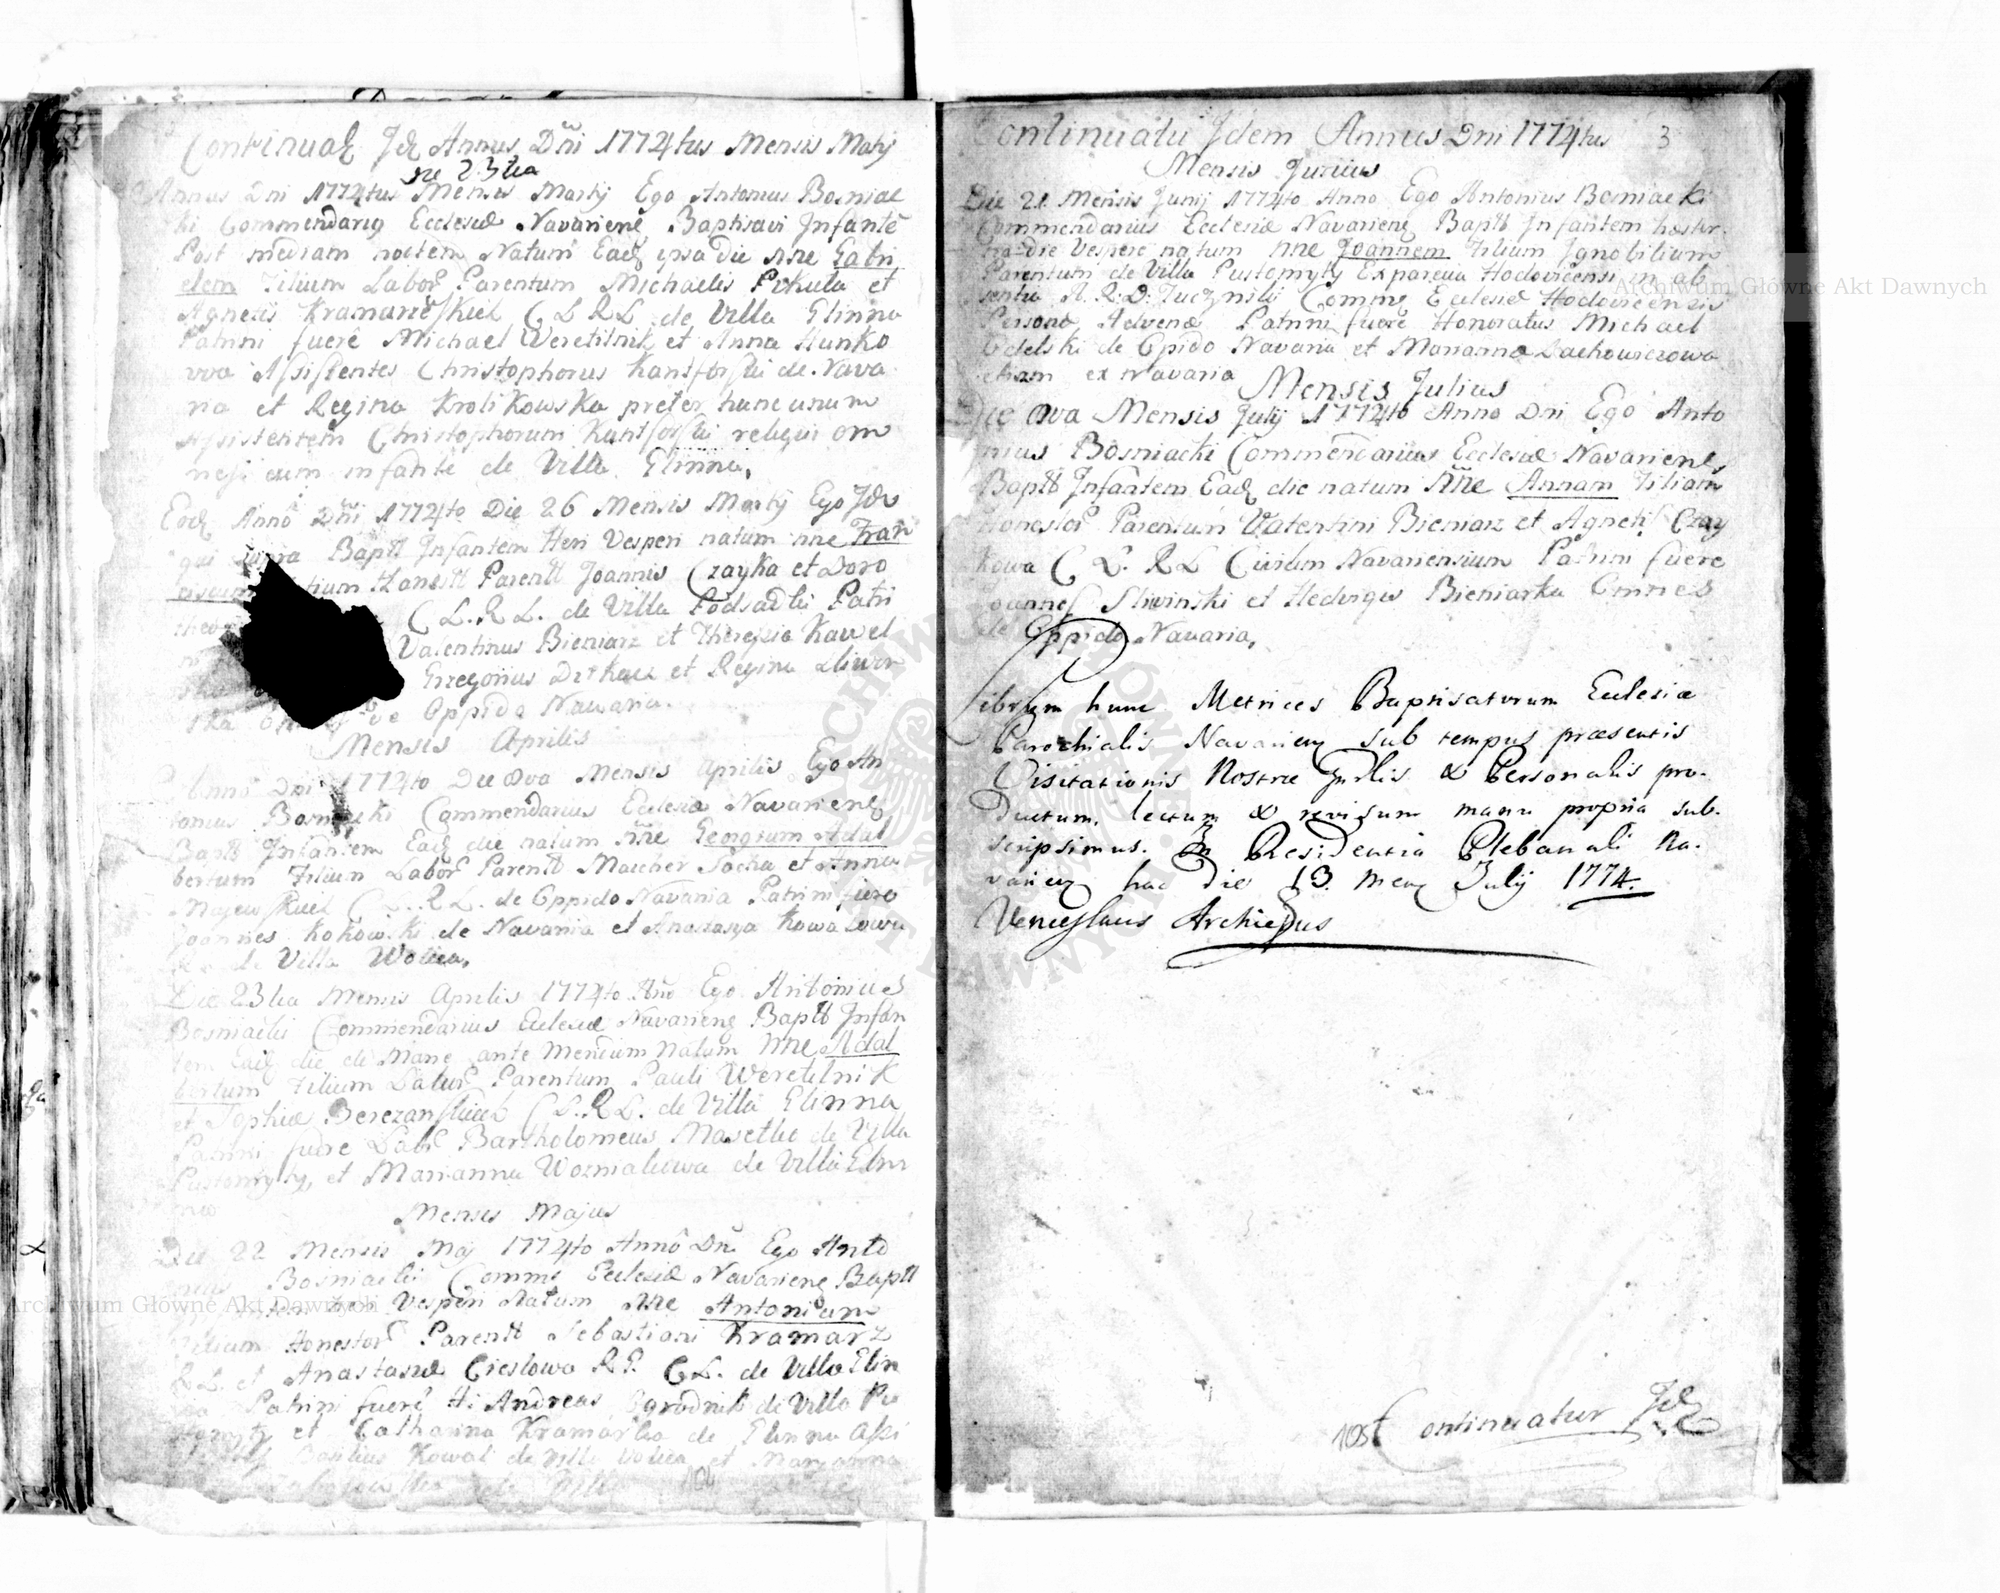 Continuat Jd Annus Dni 1774tus Mensis Martij
Die 23tia
Annus Dni 1774tus Mensis Martij Ego Antonius Bosniac
ki Commendarius Ecclesiæ Navarienę Baptisavi Infantē
Post mediam noctem Natum Eadę ipsa die nne Gabri
elem Filium Labor Parentum Michaelis Pikula et
Agnetis Kramarzeskiel C L R L de Villa Glinna
Patrini fuerê Michael Weretilnik et Anna Hunko
wa Assistentes Christophorus Kantforski de Nava
ria et Regina Krolikowska preter hunc unum
Assistentem Christophorum Kantforski reliqui om
nes cum infante de Villa Glinna,
Eodę Anno Dni 1774to Die 26 Mensis Martij Ego Jdę
qui supra Baptt Infantem Heri Vesperi natum nne Fran
ciscum Filium Honestt Parentt Joannis Czayka et Doro
theæ C L. R L. de Villa Podsadki Patri
ni Valentinus Bieniarz et Theressia Kawel
ska Grzegorius et Regina Sliwin
ska de Oppido Navaria.
Mensis Aprilis
Anno Dni 1774to Die 8va Mensis Aprilis Ego An
tonius Bosniacki Commendarius Ecclesiæ Navarienę
Baptt Infantem Eadę die natum nne Georgium Adal
bertum Filium Labor Parentt Maicher Socha et Anna
Majewskiel C L. R L. de Oppido Navaria Patrini fuere
Joannes Kokowski de Navaria et Anastasya Kowalowa
de Villa Wolica,
Die 23tia Mensis Aprilis 1774to Ano Ego Antonius
Bosniacki Commendarius Ecclesiæ Navarienę Baptt Infan
tem Eadę die de Mane ante Meridium natum nne Adal
bertum Filium Labor Parentum Pauli Weretelnik
et Sophiæ Berezanskiel C L. R L. de Villa Glinna
Patrini fuere Lab Bartholomeus Masetko de Villa
Pustomyty, et Marianna Wozniakowa de Villa Glin
na
Mensis Majus
Die 22 Mensis Maj 1774to Annô Dni Ego Anto
nius Bosniacki Comm Ecclesiæ Navarienę Baptt
Heri Vesperi Natum nne Antonium
Filium Honestor Parentt Sebastiani Kramarz
R L. et Anastasiæ Cieslowa R L. C L. de Villa Glin
na Patrini fuerê Hi Andreas Ogrodnik de Villa Pu
stomyty et Catharina Kramarka de Glinna Assi
Basilius Kowal de Villa Wolica et Maryanna
de Villa 104
Continuatu Idem Annus Dni 1774tus 3
Mensis Junius
Die 21 Mensis Junij 1774to Anno Ego Antonius Bosniacki
Commendarius Ecclesiæ Navarienę Baptt Infantem hester
na die Vespere natum nne Joannem Filium Ignobilium
Parentum de Villa Pustomyty Ex parevia Hodovicensi in ab
sentia A. R. D. Juczynski Comm Ecclesiæ Hodovicensis
Persona Advenæ Patrini fuere Honoratus Michael
Udelski de Opido Navaria et Marianna Lachowiczowa
etiam ex Navaria
Mensis Julius
Die 8va Mensis Julij 1774to Anno Dni Ego Anto
nius Bosniacki Commendarius Ecclesiæ Navarienę
Baptt Infantem Eadę die natum nne Annam Filiam
Honestor Parentum Valentini Bieniarz et Agnetis Czay
kowa C L. R L Civium Navariensium Patrini fuere
Joannes Sliwinski et Hedvigis Bieniarka Omnes
de Oppido Navaria,
Librum hunc Metrices Baptisatorum Ecclesiæ
Parochialis Navarienę sub tempus præsentis
Visitationis Nostræ Gnrlis & Personalis pro-
ductum, lectum & revisum manu propria sub-
scripsimus. In Residentia Plebanali Na-
varienę hac die 13. Menę Julij 1774.
Venceslaus Archieppus
105 Continuatur Jdę
Archiwum Główne Akt Dawnych
Archiwum Główne Akt Dawnych